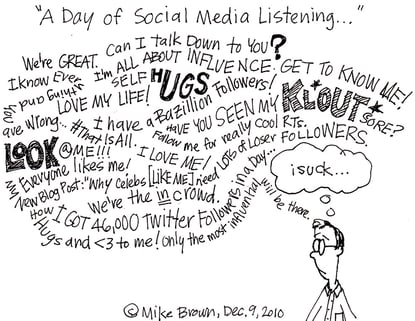 "A Day of Social Media Listening..."
Can I talk Down to You?
We're GREAT.
I'm ALL ABOUT INFLUENCE.
GET TO KNOW ME!
I know Everything and
You are Wrong...
SELF HUGS
LOVE MY LIFE!
I have a Bazillion Followers!
HAVE YOU SEEN MY KLOUT* SORE?
#That Is All.
Follow me for really Cool RTs.
LOOK @ME!!!
I LOVE ME!
LOTS of Loser FOLLOWERS.
Everyone likes me!
My New Blog Post: "Why Celebs [LIKE ME] need
We're the in crowd.
How I GOT 46,000 Twitter Followers in a Day...
Hugs and <3 to me!
Only the most influential will be there.
i suck...
© Mike Brown, Dec. 9, 2010